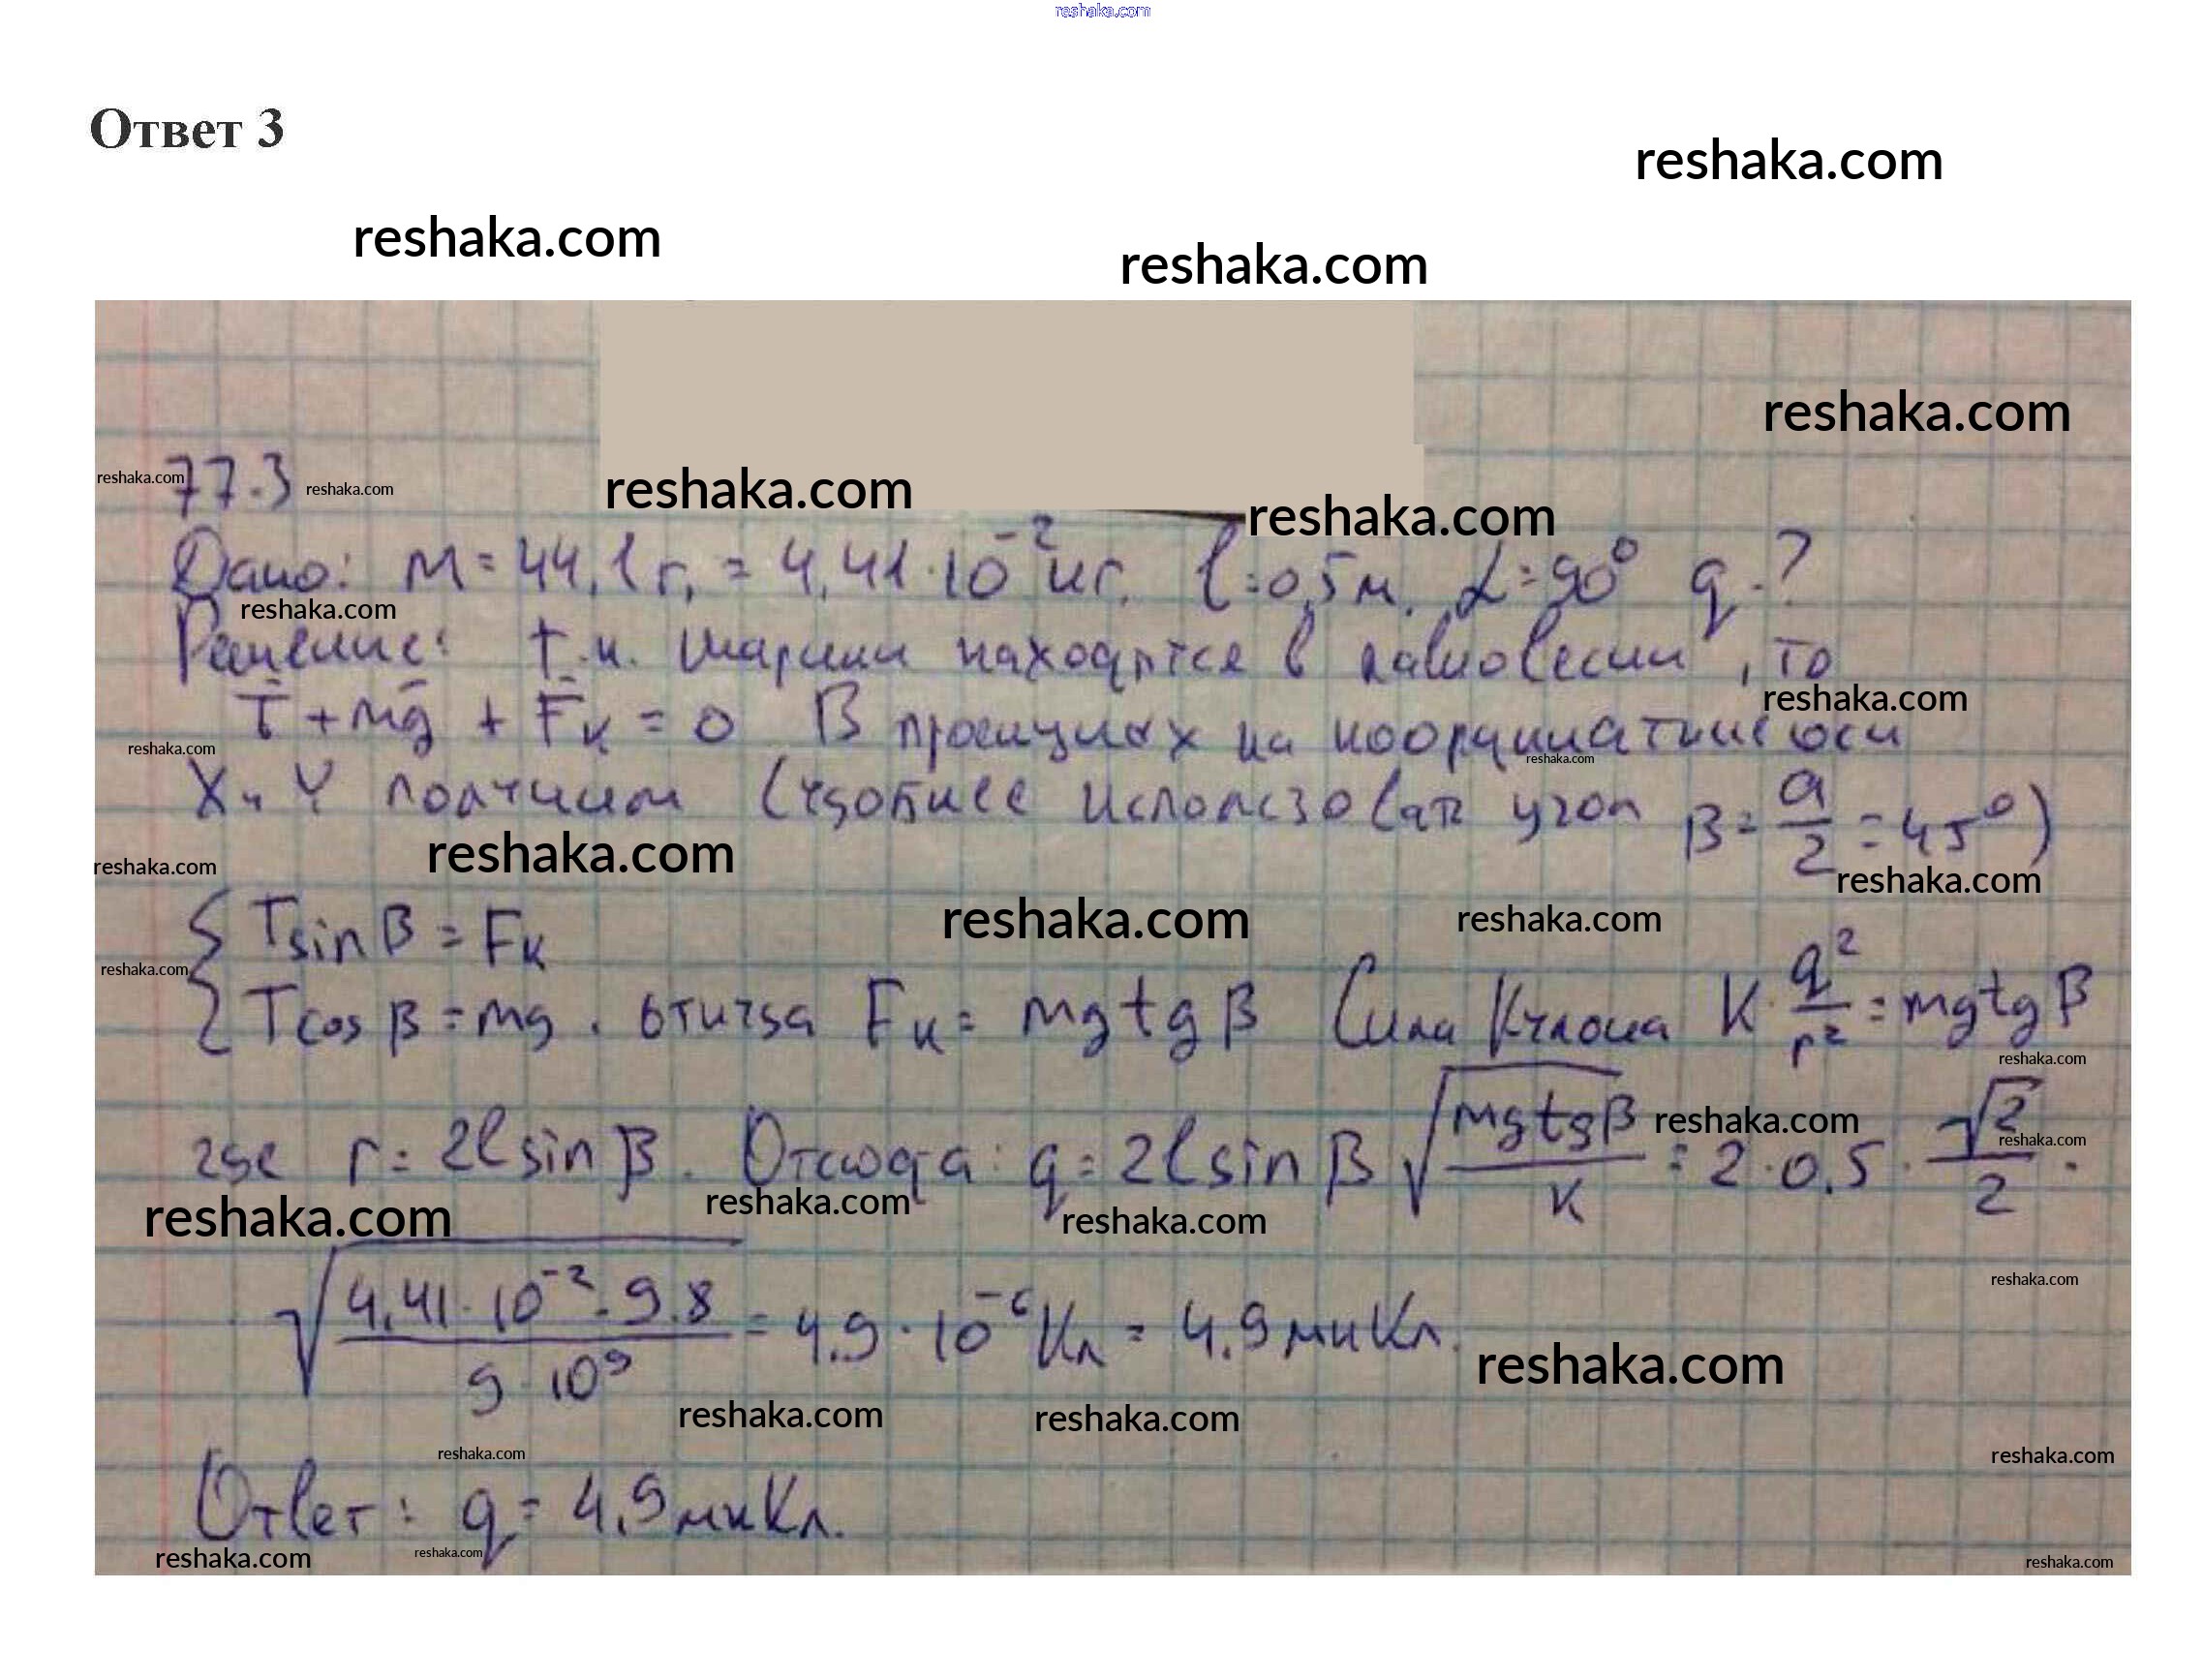 reshaka.com
Ответ 3
reshaka.com
reshaka.com
reshaka.com
reshaka.com
77.3
reshaka.com reshaka.com reshaka.com reshaka.com
Дано: m = 44,1 г, = 4,41·10⁻² кг. l = 0,5 м. α = 90° q - ?
reshaka.com
Решение: т.к. шарики находятся в равновесии, то
T̄ + mḡ + F̄к = 0 В проекциях на координатные оси
reshaka.com
reshaka.com reshaka.com
X и Y получим (удобнее использовать угол β = a/2 = 45°)
reshaka.com reshaka.com reshaka.com
{ T sin β = Fк
reshaka.com reshaka.com
reshaka.com
{ T cos β = mg. откуда Fк = mg tg β Сила Кулона K · q²/r² = mg tg β
reshaka.com
где r = 2l sin β. Отсюда: q = 2l sin β √(mg tg β / K) = 2 · 0,5 · √2/2 ·
reshaka.com reshaka.com
reshaka.com reshaka.com reshaka.com
· √(4,41·10⁻² · 9.8 / 9·10⁹) = 4.9 · 10⁻⁶ Кл = 4.9 мкКл.
reshaka.com
reshaka.com
reshaka.com reshaka.com
reshaka.com reshaka.com
Ответ: q = 4,9 мкКл.
reshaka.com reshaka.com reshaka.com